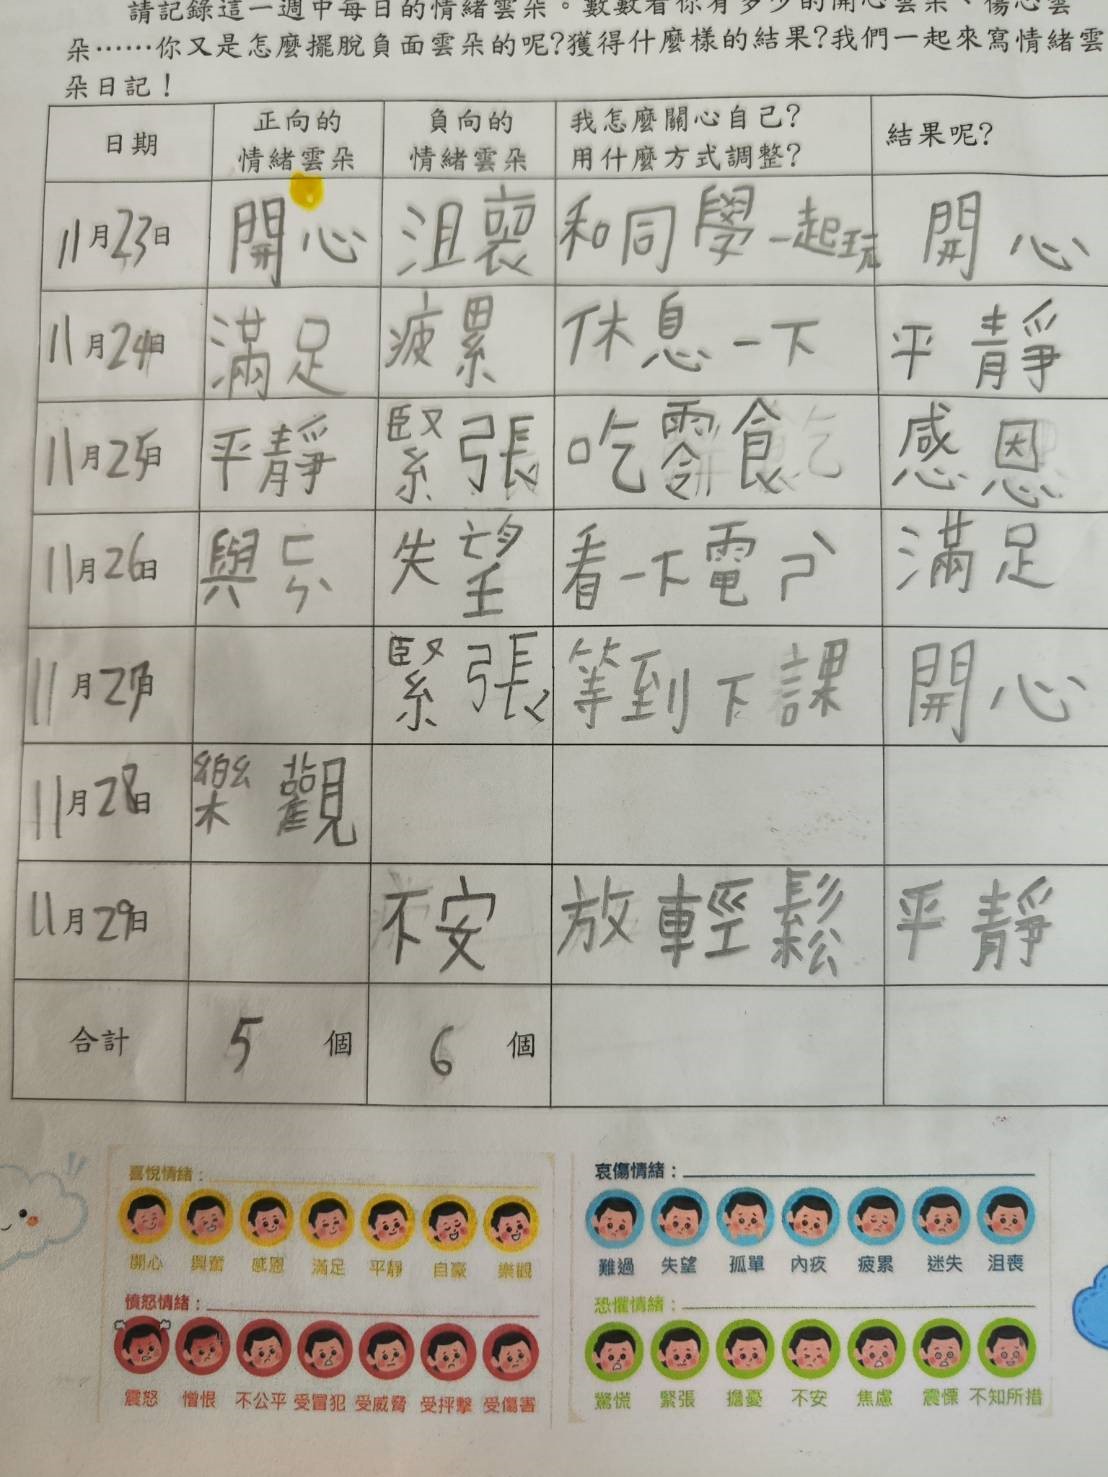 請記錄這一週中每日的情緒雲朵。數數看你有多少的開心雲朵、傷心雲
朵……你又是怎麼擺脫負面雲朵的呢?獲得什麼樣的結果?我們一起來寫情緒雲
朵日記!
日期 正向的情緒雲朵 負向的情緒雲朵 我怎麼關心自己?用什麼方式調整? 結果呢?
11月23日 開心 沮喪 和同學一起玩 開心
11月24日 滿足 疲累 休息一下 平靜
11月25日 平靜 緊張 吃零食 感恩
11月26日 興ㄈㄣˋ 失望 看一下電ㄕˋ 滿足
11月27日 緊張 等到下課 開心
11月28日 樂觀
11月29日 不安 放輕鬆 平靜
合計 5個 6個
喜悅情緒:
開心 興奮 感恩 滿足 平靜 自豪 樂觀
哀傷情緒:
難過 失望 孤單 內疚 疲累 迷失 沮喪
憤怒情緒:
震怒 憎恨 不公平 受冒犯 受威脅 受抨擊 受傷害
恐懼情緒:
驚慌 緊張 擔憂 不安 焦慮 震慄 不知所措